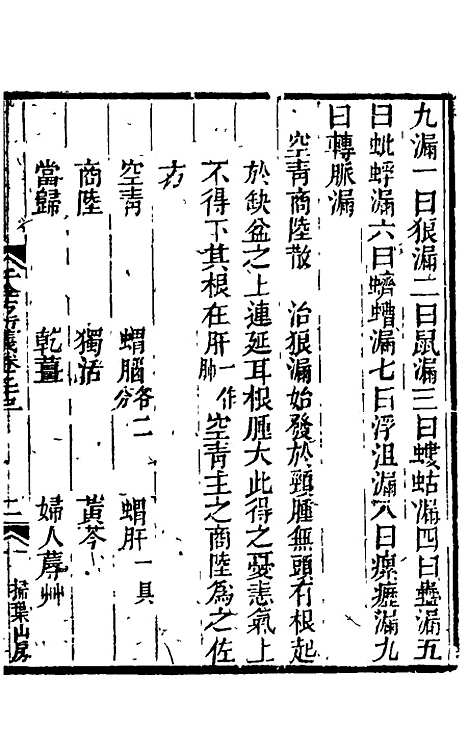 九漏一曰狼漏二曰鼠漏三曰螻蛄漏四曰蜂漏五
曰蚍蜉漏六曰蠐螬漏七曰浮沮漏八曰瘰癧漏九
曰轉脈漏
空青商陸散 治狼漏始發於頸腫無頭有根起
於缺盆之上連延耳根腫大此得之憂恚氣上
不得下其根在肝一作肺空青主之商陸為之佐
方
空青 蝟腦各二分 蝟肝一具
商陸 獨活 黃芩
當歸 乾薑 婦人蓐艸
掃葉山房